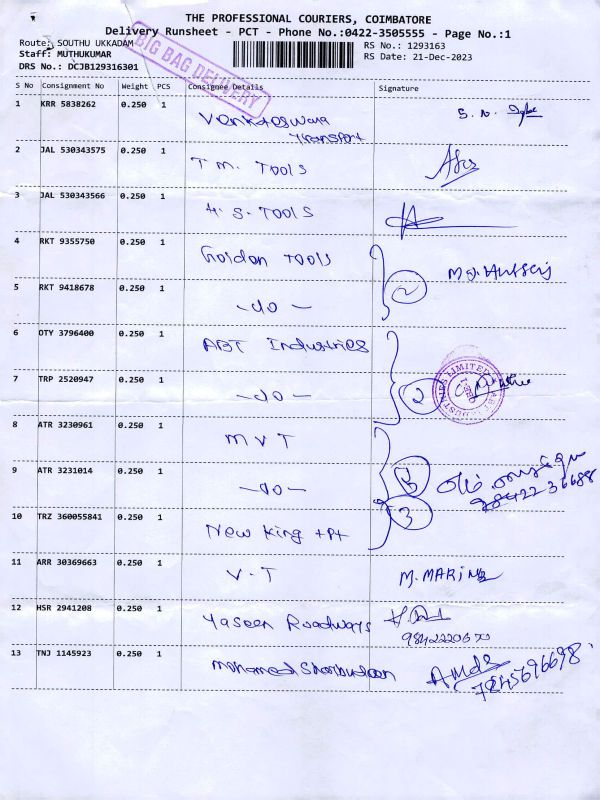 THE PROFESSIONAL COURIERS, COIMBATORE
Delivery Runsheet - PCT - Phone No.:0422-3505555 - Page No.:1
Route: SOUTHU UKKADAM
Staff: MUTHUKUMAR
DRS No.: DCJB129316301
BIG BAG DELIVERY
RS No.: 1293163
RS Date: 21-Dec-2023
S No Consignment No Weight PCS Consignee Details Signature
1 KRR 5838262 0.250 1 Venkateswara Transport S. N.
2 JAL 530343575 0.250 1 T M. TOOLS
3 JAL 530343566 0.250 1 H. S. TOOLS
4 RKT 9355750 0.250 1 Golden Tools
5 RKT 9418678 0.250 1 -do- 2
6 OTY 3796400 0.250 1 ABT Industries
7 TRP 2520947 0.250 1 -do- 2
8 ATR 3230961 0.250 1 M V T
9 ATR 3231014 0.250 1 -do-
10 TRZ 360055841 0.250 1 New King tpt 3
11 ARR 30369663 0.250 1 V. T M. MARINE
12 HSR 2941208 0.250 1 Yaseen Roadways
13 TNJ 1145923 0.250 1 Mohamed
7845696698